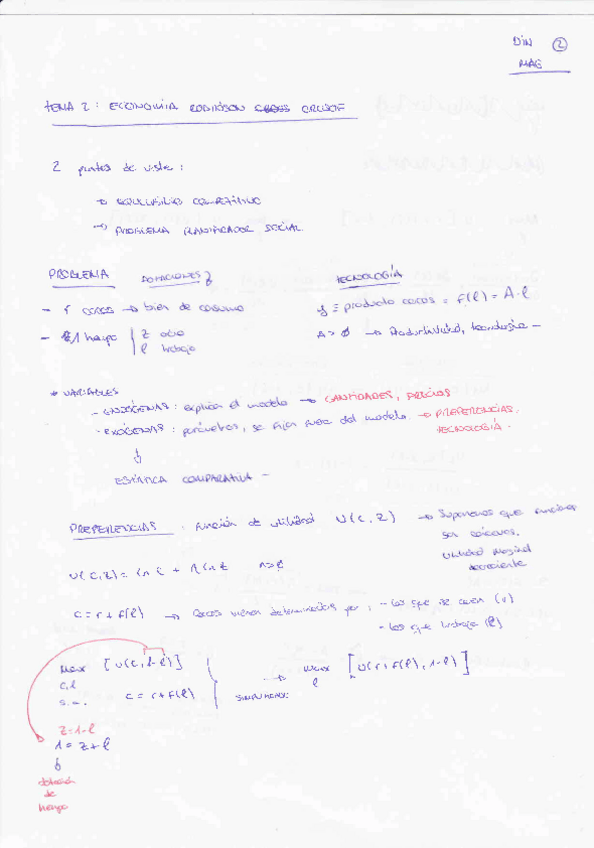 DIN 2
MAG
TEMA 2: ECONOMÍA ROBINSON CRUSOE
2 puntos de vista:
→ EQUILIBRIO COMPETITIVO
→ PROBLEMA PLANIFICADOR SOCIAL.
PROBLEMA DOTACIONES TECNOLOGÍA
- r cocos → bien de consumo y ≡ producto cocos = f(l) = A·l
- 1 tiempo z ocio A > 0 → Productividad, tecnología -
l trabajo
* VARIABLES
- ENDÓGENAS: explica el modelo → CANTIDADES, PRECIOS
- EXÓGENAS: parámetros, se fijan fuera del modelo. → PREFERENCIAS,
TECNOLOGÍA.
↓
ESTÁTICA COMPARATIVA -
PREFERENCIAS: Función de utilidad U(C,Z) → Suponemos que funciones
son cóncavas.
Utilidad marginal
decreciente
U(C,Z) = ln C + A ln Z A>0
C = r + f(l) → Cocos vienen determinados por: - Los que se caen (r)
- Los que trabaja (l)
Max [U(C,1-l)] → max [U(r+f(l), 1-l)]
c,l l
s.a. C = r + f(l)
Z = 1-l
1 = Z + l
↓
dotación
de
tiempo